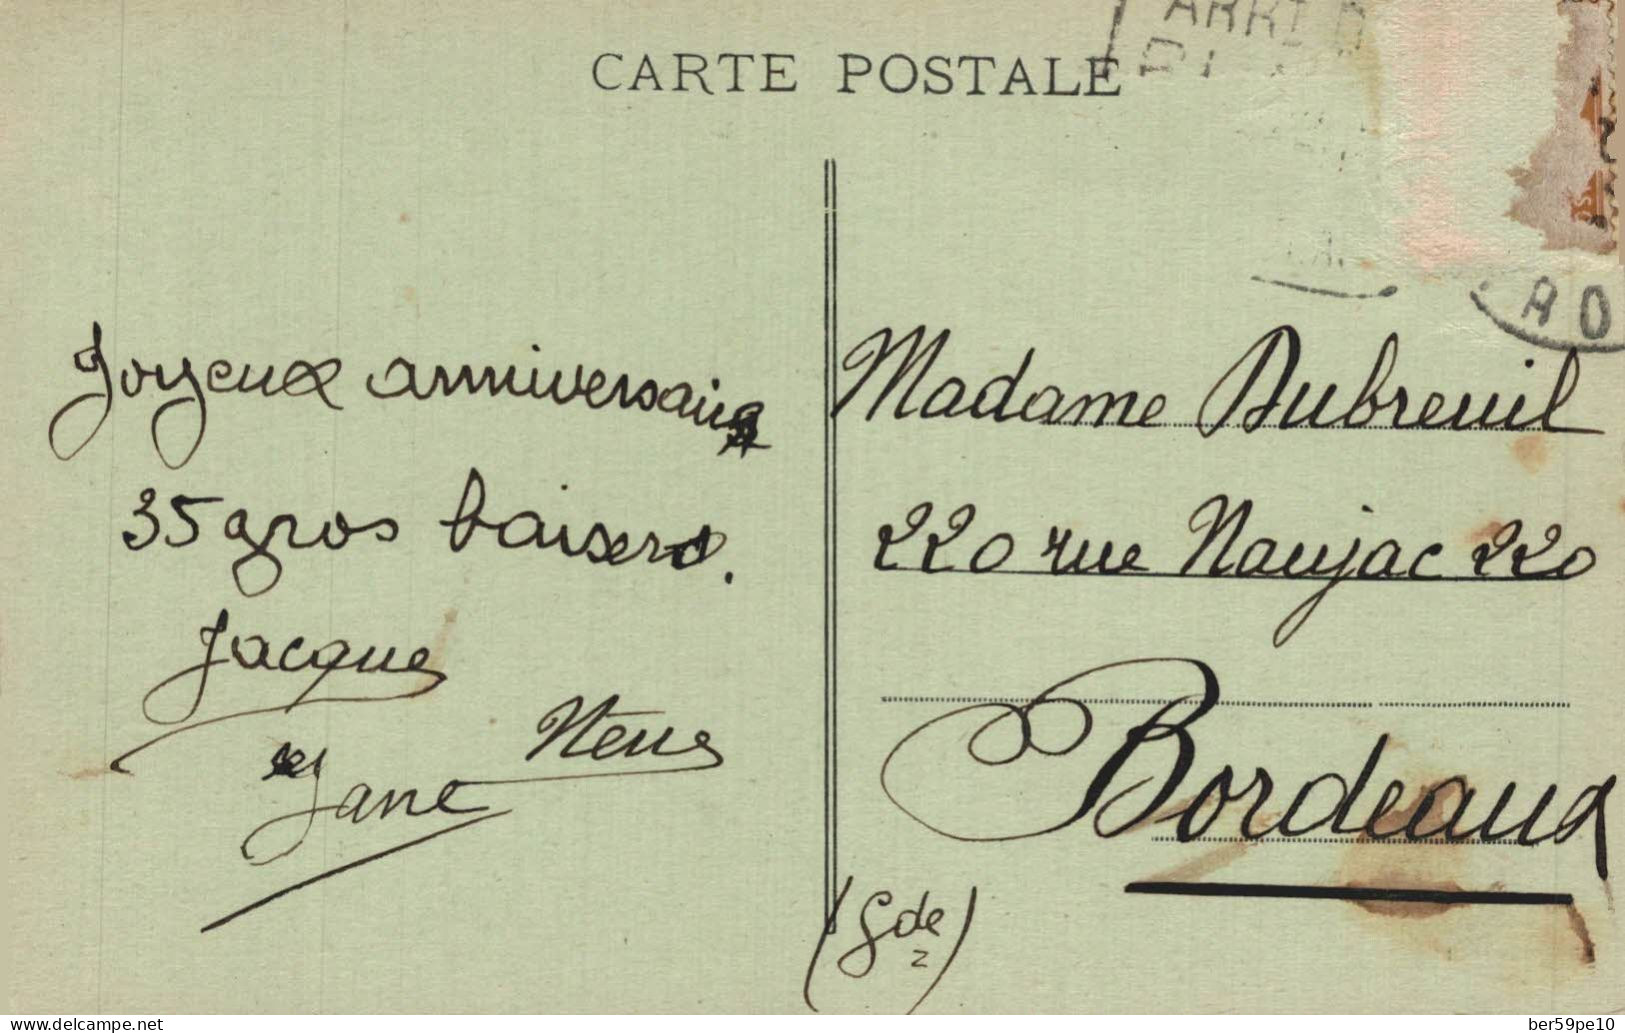 CARTE POSTALE
Joyeux anniversaire
35 gros baisers.
Jacques
et Jane
Madame Dubreuil
220 rue Naujac 220
Bordeaux
(Gde)
AO
delcampe.net
ber59pe10